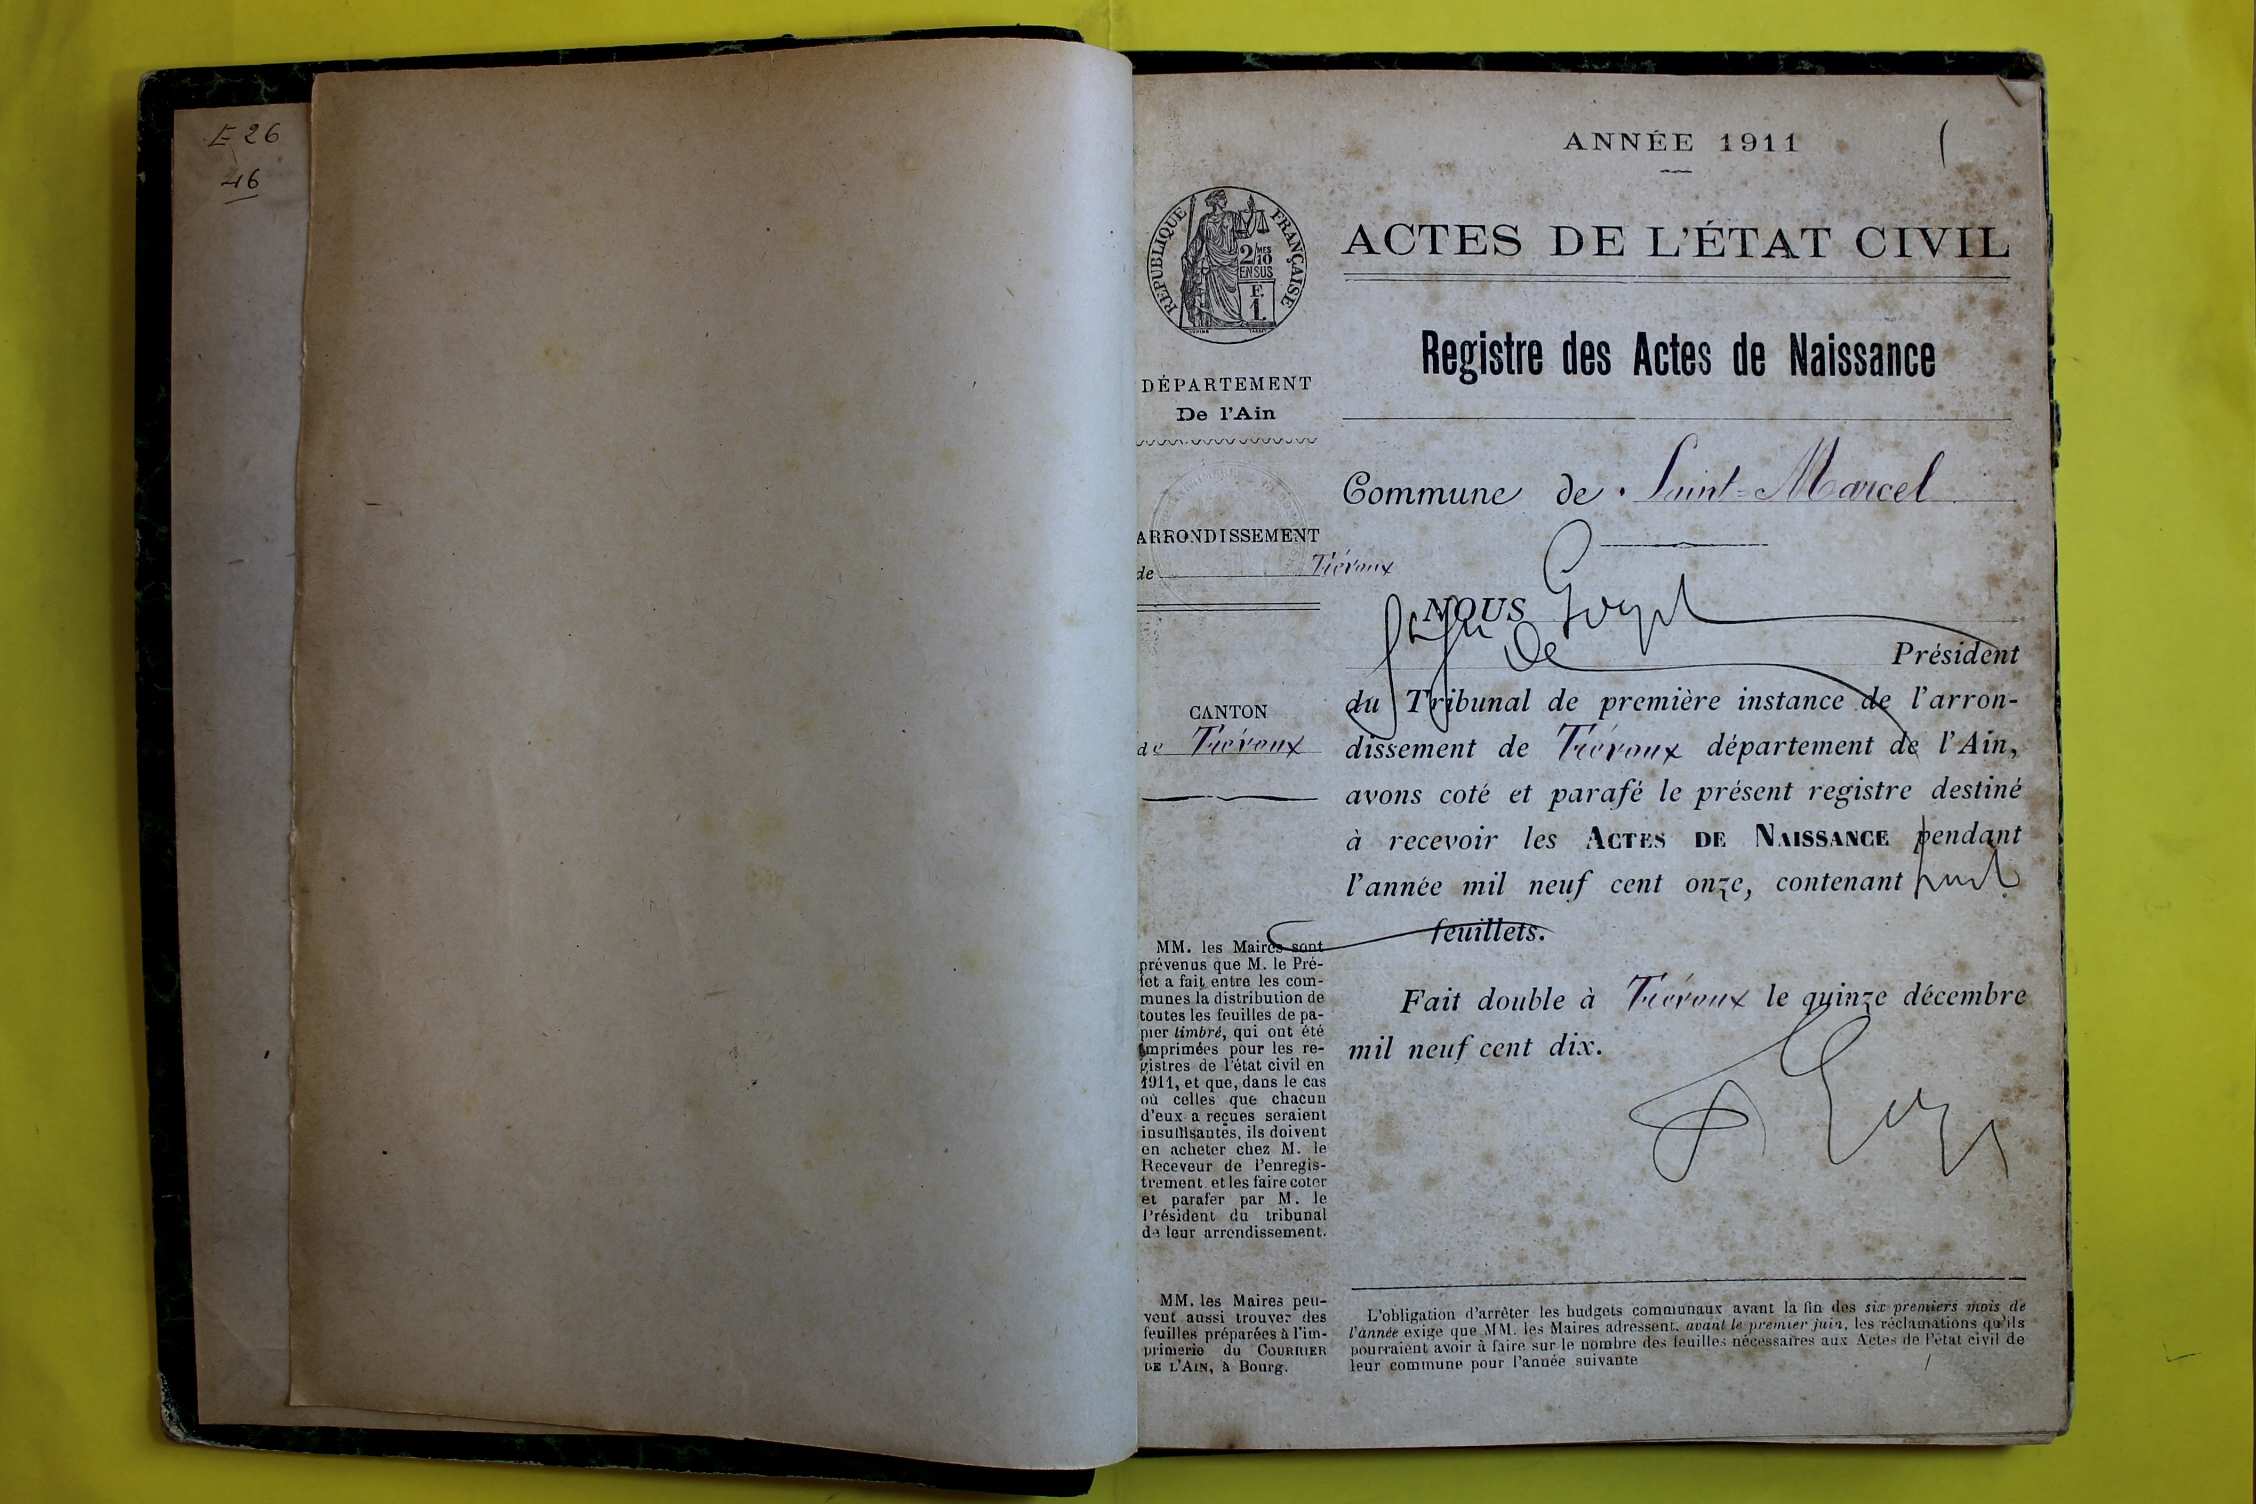 E 26
46
ANNÉE 1911
1
RÉPUBLIQUE FRANÇAISE
2/10 MES
EN SUS
F.
1.
ACTES DE L'ÉTAT CIVIL
Registre des Actes de Naissance
DÉPARTEMENT
De l'Ain
ARRONDISSEMENT
de Trévoux
CANTON
de Trévoux
MM. les Maires sont
prévenus que M. le Pré-
fet a fait entre les com-
munes la distribution de
toutes les feuilles de pa-
pier timbré, qui ont été
imprimées pour les re-
gistres de l'état civil en
1911, et que, dans le cas
où celles que chacun
d'eux a reçues seraient
insuffisantes, ils doivent
en acheter chez M. le
Receveur de l'enregis-
trement et les faire coter
et parafer par M. le
Président du tribunal
de leur arrondissement.
MM. les Maires peu-
vent aussi trouver des
feuilles préparées à l'im-
primerie du COURRIER
DE L'AIN, à Bourg.
Commune de Saint-Marcel
NOUS
de
Président
du Tribunal de première instance de l'arron-
dissement de Trévoux département de l'Ain,
avons coté et parafé le présent registre destiné
à recevoir les ACTES DE NAISSANCE pendant
l'année mil neuf cent onze, contenant huit
feuillets.
Fait double à Trévoux le quinze décembre
mil neuf cent dix.
L'obligation d'arrêter les budgets communaux avant la fin des six premiers mois de
l'année exige que MM. les Maires adressent, avant le premier juin, les réclamations qu'ils
pourraient avoir à faire sur le nombre des feuilles nécessaires aux Actes de l'état civil de
leur commune pour l'année suivante